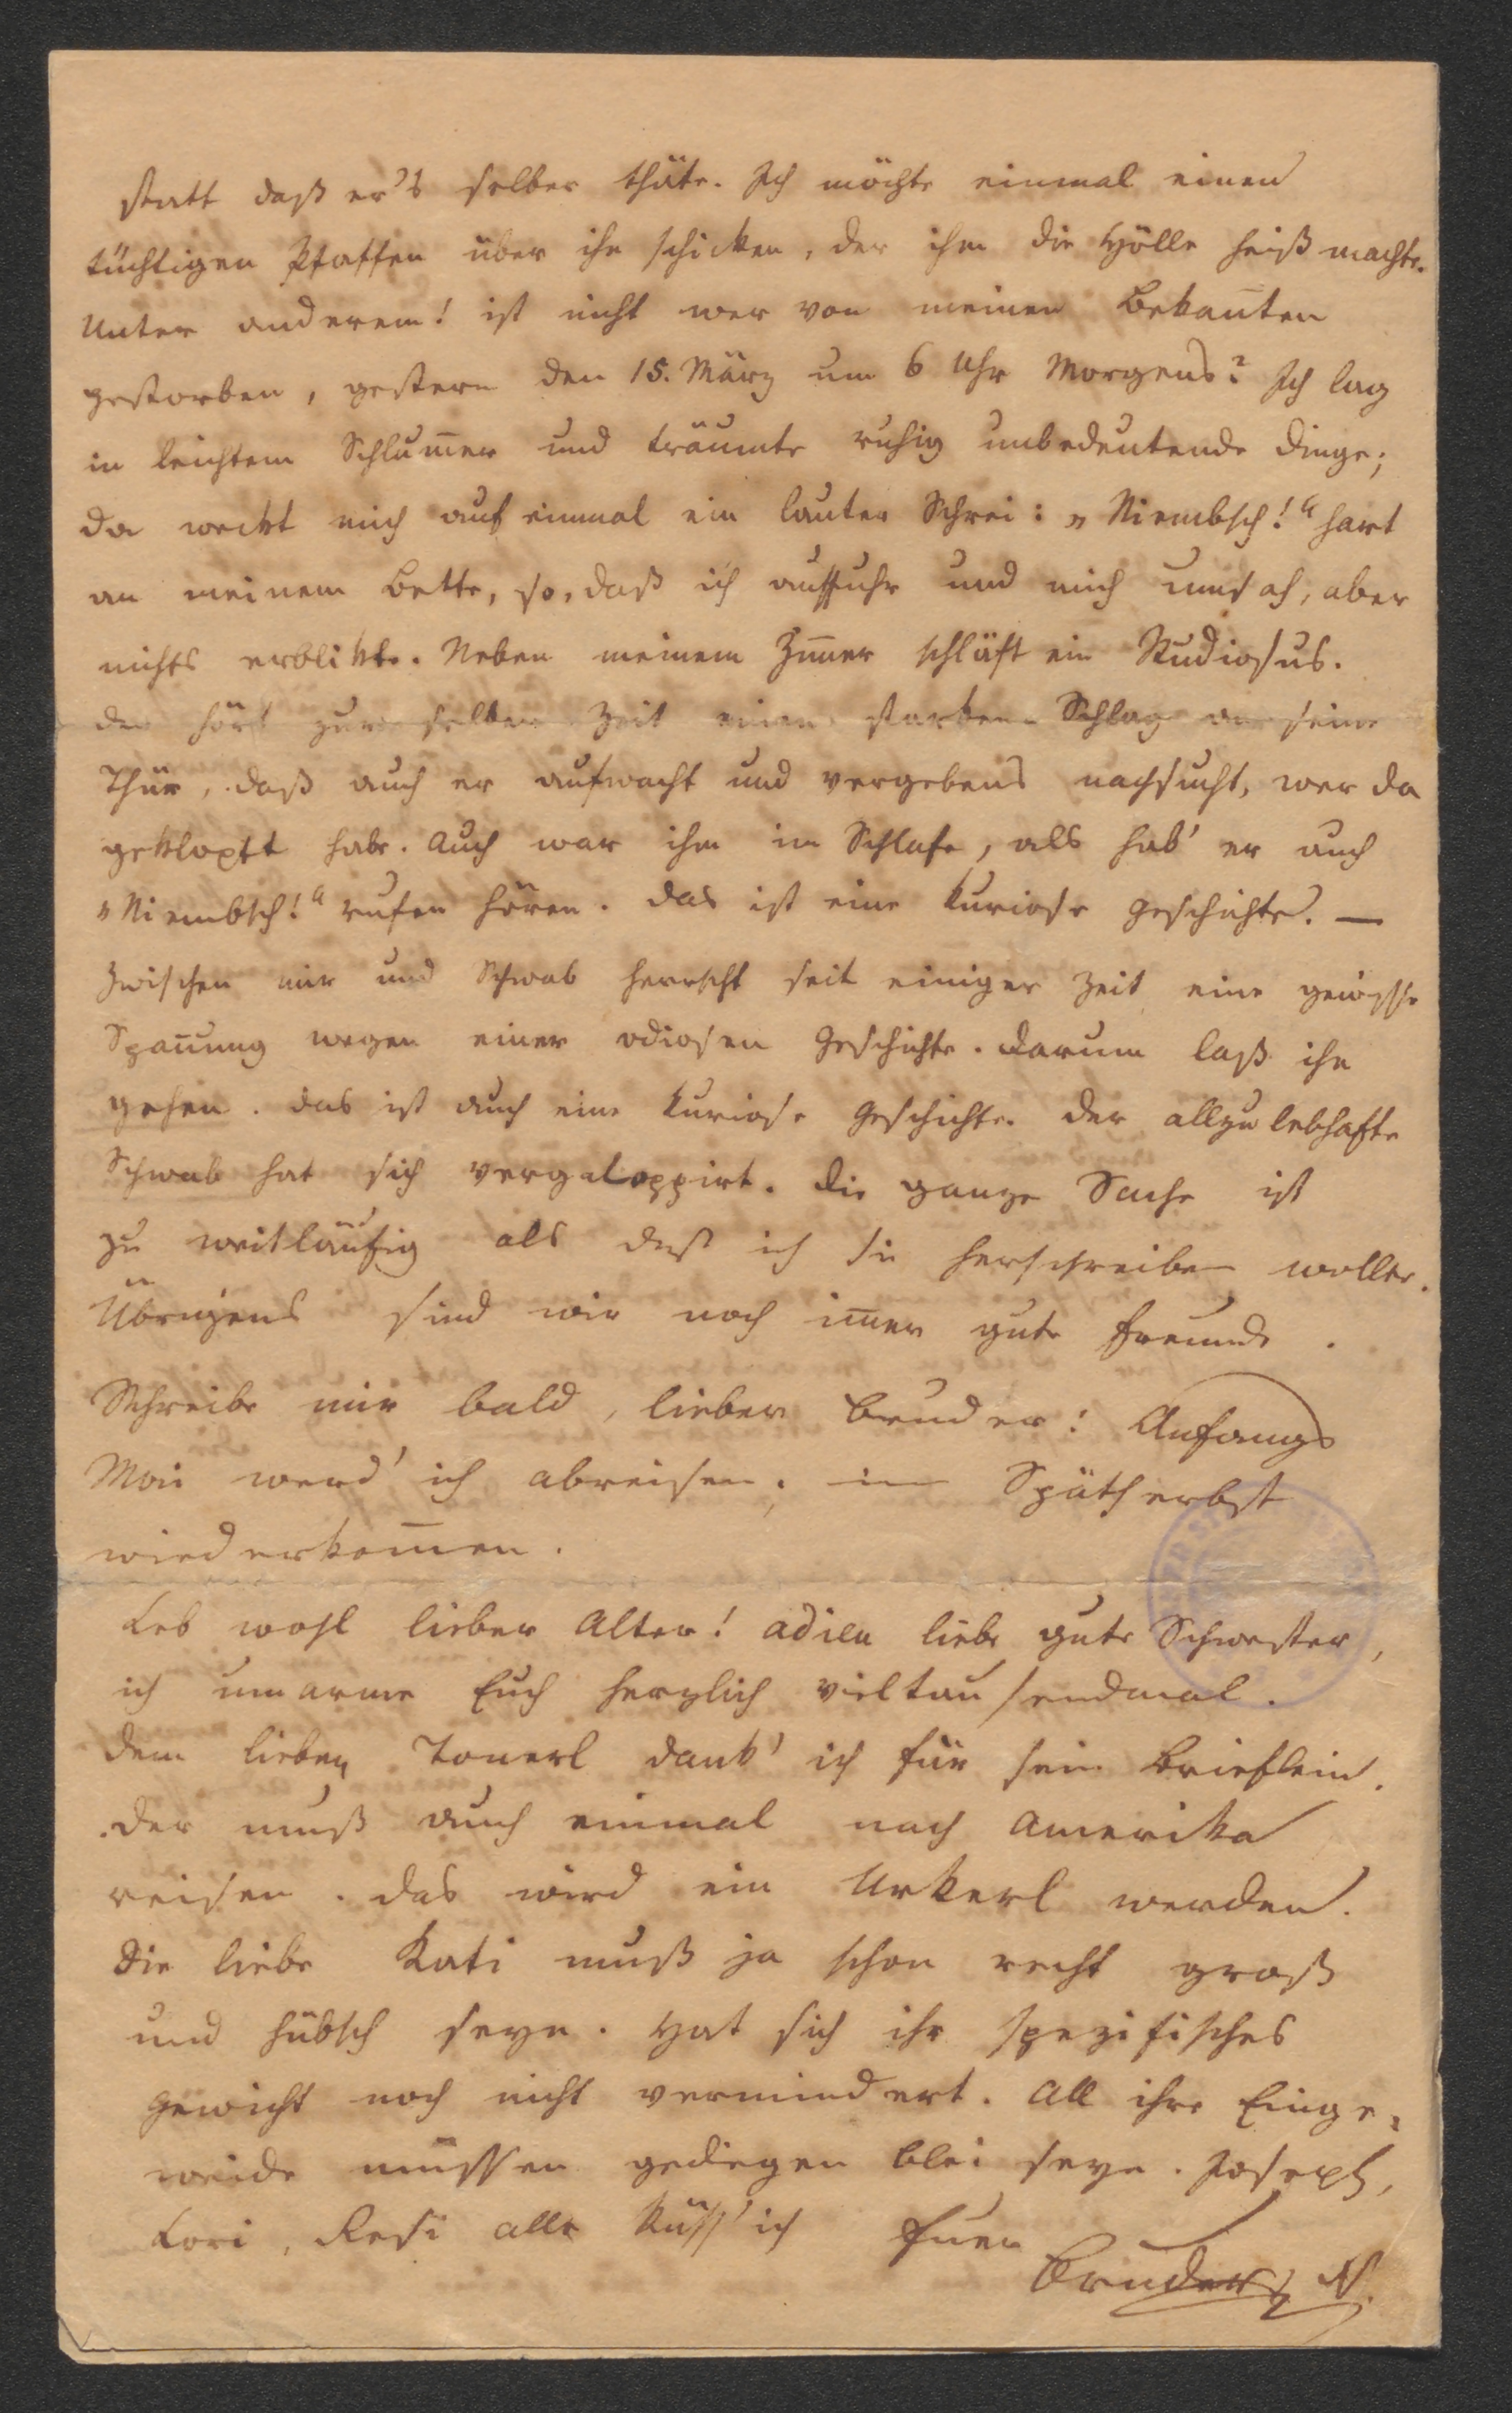 statt daß er's selber thäte. Ich möchte einmal einen
tüchtigen Pfaffen über ihn schicken, der ihm die Hölle heiß machte.
Unter anderem! ist nicht wer von meinen Bekan̅ten
gestorben, gestern den 15. März um 6 Uhr Morgens? Ich lag
in leichtem Schlum̅er und träumte ruhig unbedeutende Dinge;
da wekt mich auf einmal ein lauter Schrei: „Niembsch!“ hart
an meinem Bette, so, daß ich auffuhr und mich umsah, aber
nichts erblikte. Neben meinem Zim̅er schläft ein Studiosus.
der hört zur selben Zeit einen starken Schlag an seine
Thür, daß auch er aufwacht und vergebens nachsucht, wer da
geklopft habe. Auch war ihm im Schlafe, als hab' er auch
„Niembsch!“ rufen hören. Das ist eine kuriose Geschichte. —
Zwischen mir und Schwab herrscht seit einiger Zeit eine gewisse
Span̅ung wegen einer odiosen Geschichte. Darum laß ihn
gehen. Das ist auch eine kuriose Geschichte. Der allzulebhafte
Schwab hat sich vergaloppirt. Die ganze Sache ist
zu weitläufig als daß ich sie herschreiben wollte.
Übrigens sind wir noch im̅er gute Freunde.
Schreibe mir bald, lieber Bruder! Anfangs
Mai werd' ich abreisen; im Spätherbst
wiederkom̅en.
Leb wohl lieber Alter! adieu liebe gute Schwester,
ich umarme Euch herzlich vieltausendmal.
Dem lieben Tonerl dank' ich für sein Brieflein.
Der muß auch einmal nach Amerika
reisen. Das wird ein Urkerl werden.
Die liebe Kati muß ja schon recht groß
und hübsch seyn. Hat sich ihr spezifisches
Gewicht noch nicht vermindert. All ihre Einge-
weide müssen gediegen Blei seyn. Joseph,
Lori, Resi alle küss' ich Euer
Bruder N.